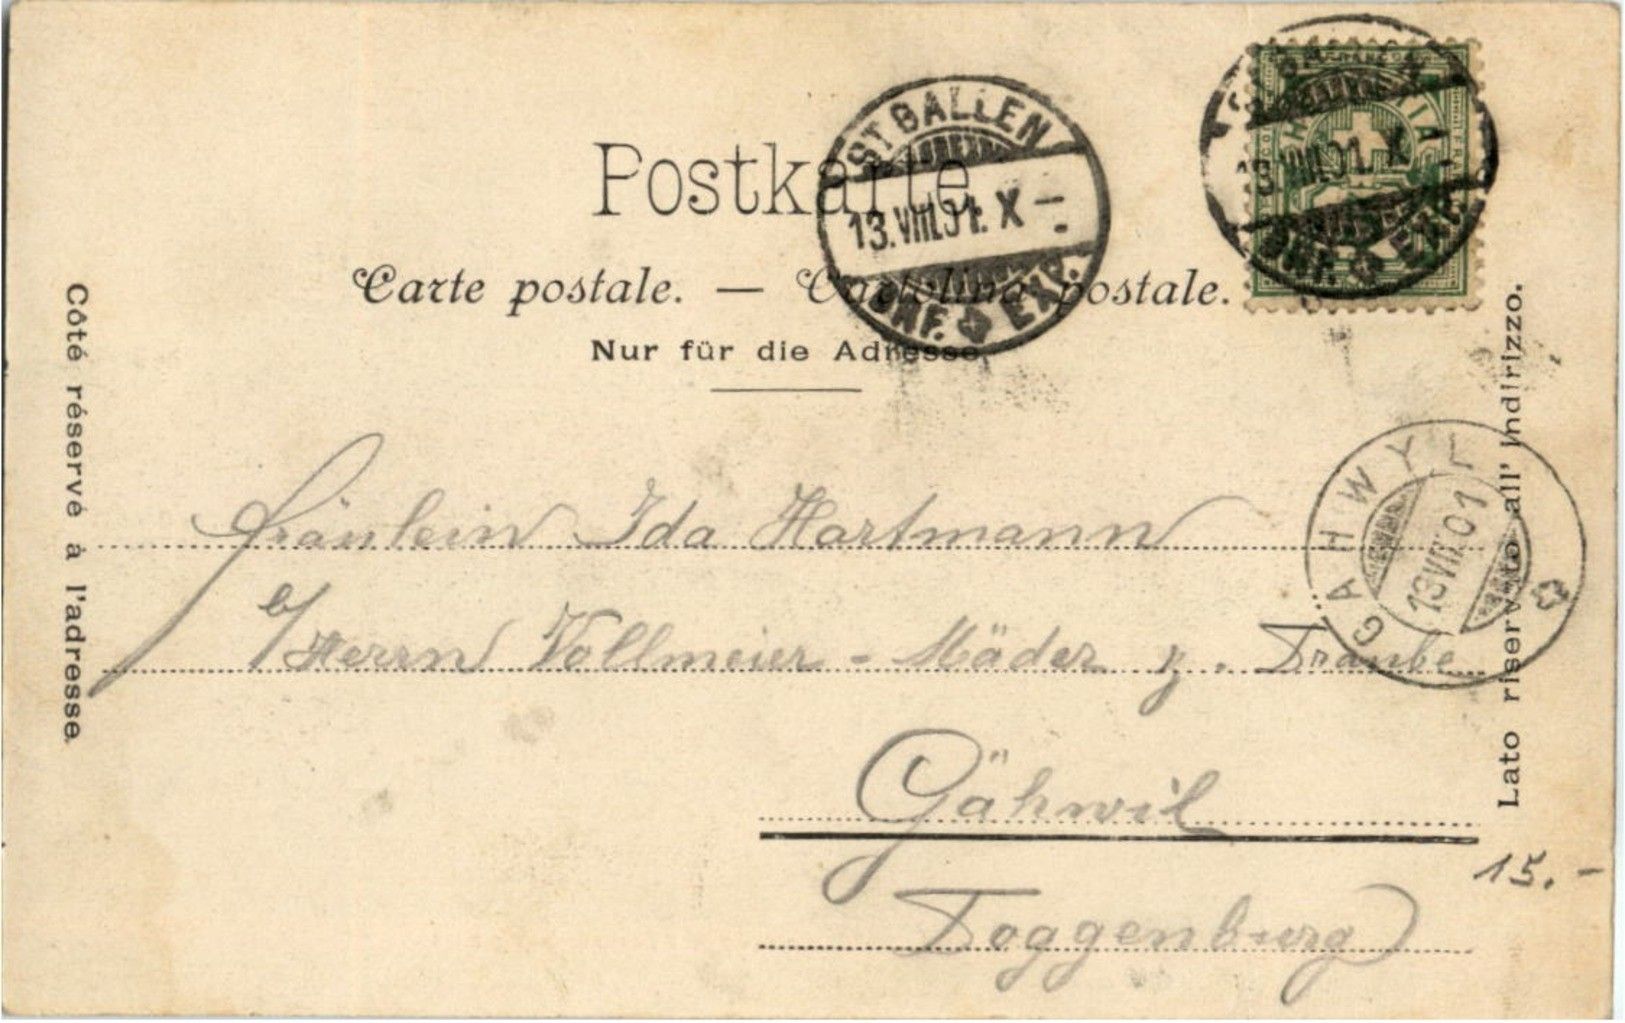 Postkarte
Carte postale. — Cartolina postale.
Nur für die Adresse.
Côté réservé à l'adresse.
Lato riservato all' Indirizzo.
ST. GALLEN
13.VIII.01. X –
BRF. EXP.
ST. GALLEN
13.VIII.01. X –
BRF. EXP.
HELVETIA
GÄHWYL
13 VIII 01
Fräulein Ida Hartmann
b/ Herrn Vollmeier - Mäder z. Traube
Gähwil
Toggenburg
15.–